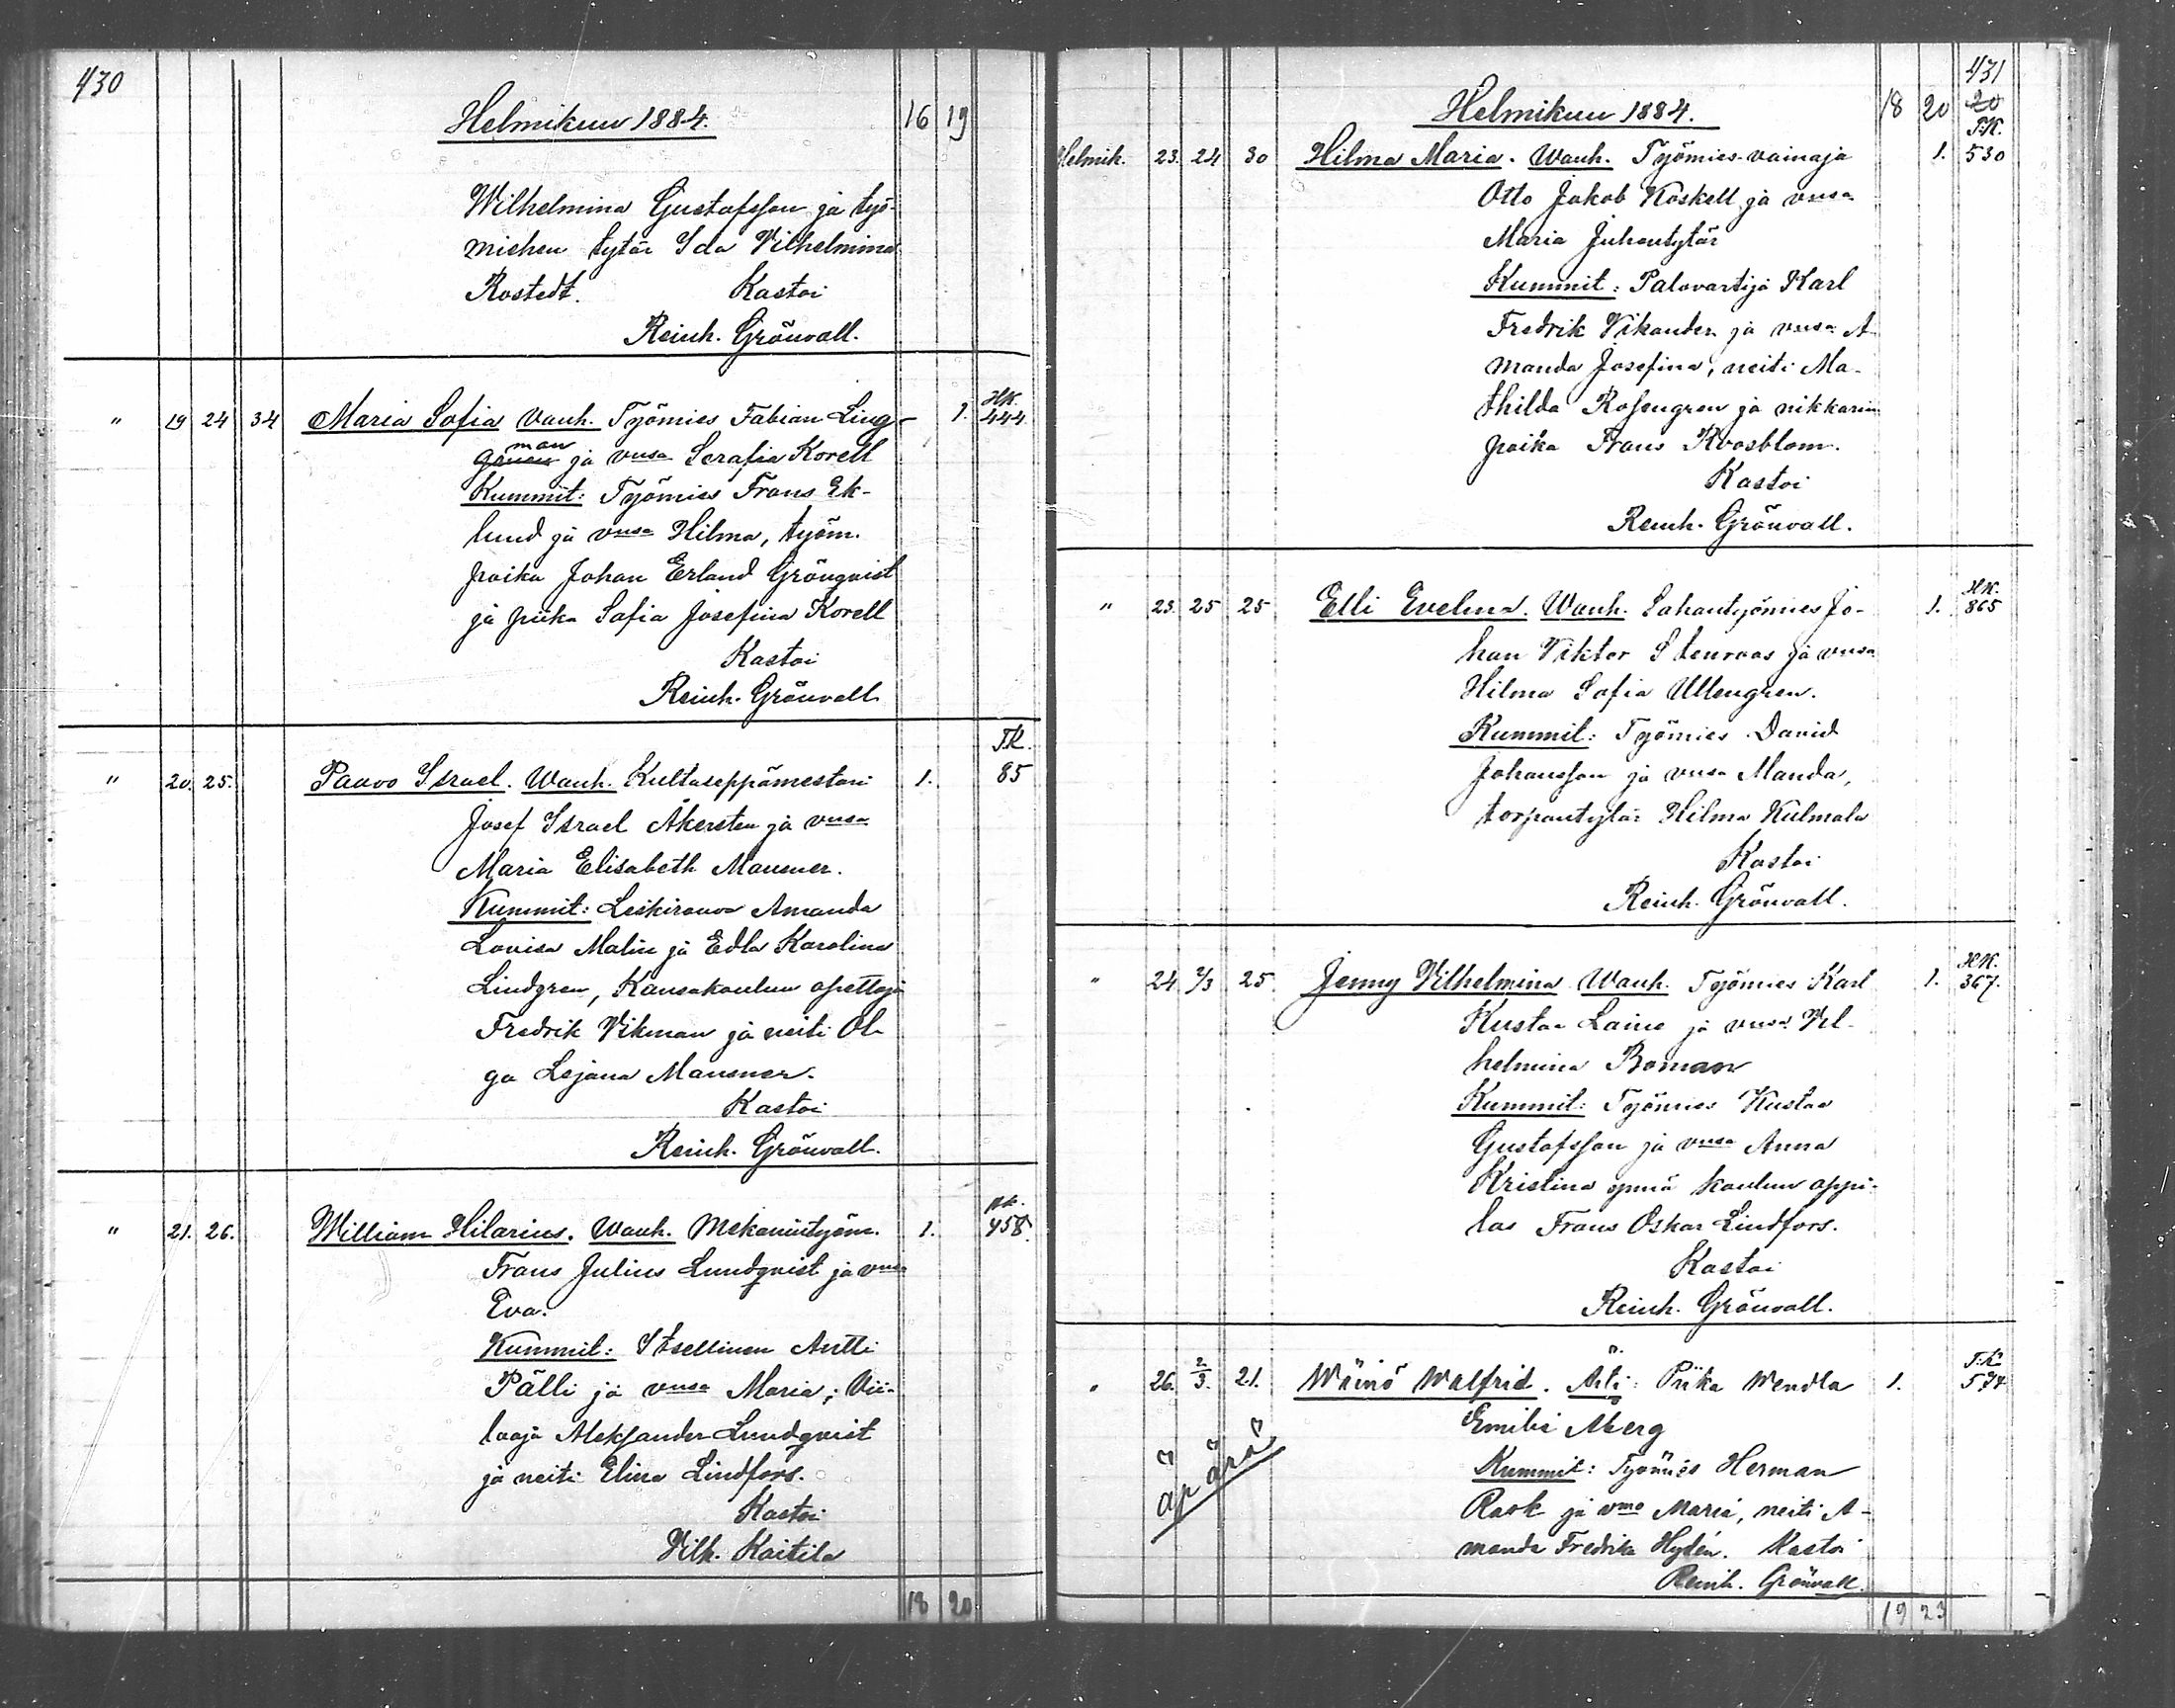 430
Helmikuu 1884. 16 19
Wilhelmina Gustafsson ja työ-
miehen tytär Ida Vilhelmina
Rostedt. Kastoi
Reinh. Grönvall.
" 19 24 34 Maria Sofia Vanh. Työmies Fabian Ling- 1. HK. 444
man
ja vmsa Serafia Korell
Kummit: Työmies Frans Ek-
lund ja vmsa Hilma, työm.
poika Johan Erland Grönqvist
ja piika Sofia Josefina Korell
Kastoi
Reinh. Grönvall
T.K.
" 20. 25. Paavo Israel. Wanh. Kultaseppämestari 1. 85
Josef Israel Åkersten ja vmsa
Maria Elisabeth Mansner.
Kummit: Leskirouva Amanda
Lovisa Malin ja Edla Karolina
Lindgren, Kansakoulun opettaja
Fredrik Vikman ja neiti Ol-
ga Mansner.
Kastoi
Reinh. Grönvall.
" 21. 26. William Hilarius. Wanh. Mekanintyöm. 1. 458.
Frans Julius Lundqvist ja vmsa
Eva.
Kummit: Itsellinen Antti
Pälli ja vmsa Maria; Vii-
laaja Aleksander Lundqvist
ja neiti Elina Lindfors.
Kastoi
Vilh. Kaitila
18 20
431
Helmikuu 1884. 18 20 20
T.K.
Helmik. 23. 24 30 Hilma Maria. Wanh. Työmies-vainaja 1. 530
Otto Jakob Koskell ja vmsa
Maria Juhontytär
Kummit: Palovartija Karl
Fredrik Vikander ja vmsa A-
manda Josefina, neiti Ma-
thilda Rosengren ja nikkarin
poika Frans Roosblom.
Kastoi
Reinh. Grönvall.
HK.
" 23. 25 25 Elli Evelina. Wanh. Sahantyömies Jo- 1. 865
han Viktor Stenroos ja vmsa
Hilma Sofia Ullengren.
Kummit: Työmies David
Johansson ja vmsa Manda,
torpantytär Hilma Kulmala
Kastoi
Reinh. Grönvall.
HK.
" 24 2/3 25 Jenny Vilhelmina Wanh. Työmies Karl 1. 367.
Kustaa Laine ja vmsa Vil-
helmina Boman
Kummit: Työmies Kustaa
Gustafsson ja vmsa Anna
Kristina ynnä koulun oppi-
las Frans Oskar Lindfors.
Kastoi
Reinh. Grönvall.
T.K.
" 26. 2/3. 21. Wäinö Walfrid. Äiti: Piika Wendla 1. 574
Emilia Åberg
äpärä
Kummit: Työmies Herman
Rask ja vmo Maria, neiti A-
manda Fredrika Hydén. Kastoi
Reinh. Grönvall.
19 23